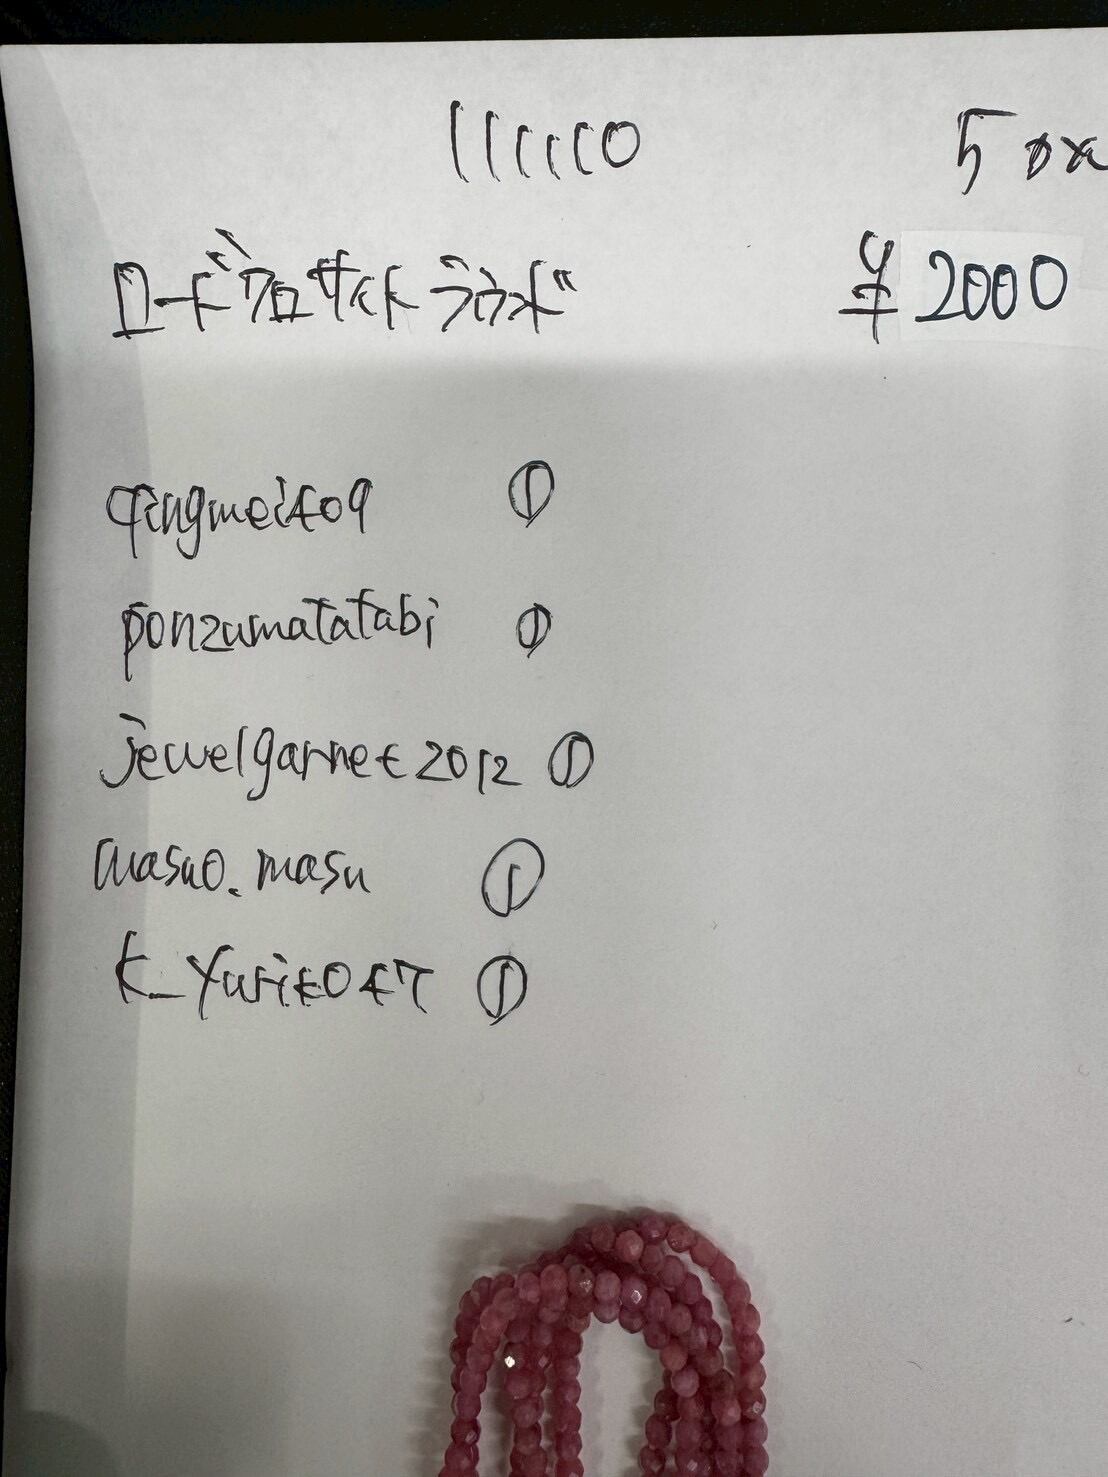 1111110 5
ロードクロサイト ラウンド ¥2000
qingmei409 ①
ponzumatatabi ①
jewelgarnet2012 ①
masuo.masu ①
K_Yuriko47 ①